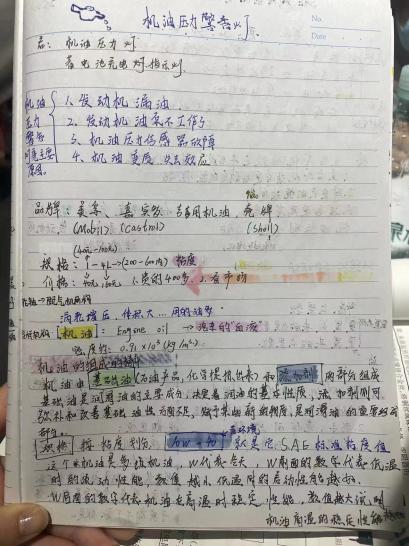 机油压力警告灯
No.
Date
机油压力灯
蓄电池充电灯指示灯
机油压力警告灯主要原因
1. 发动机漏油
2. 发动机油泵不工作
3. 机油压力传感器故障
4. 机油变质失去效应
品牌: 美孚、嘉实多 专用机油, 壳牌
(Mobil) (Castrol) (Shell)
规格: 4L (200-600内) 粘度
价格:
涡轮增压, 体积大
机油: Engine oil → 汽车的"血液"
密度约: 0.91×10³ (kg/m³)
机油的组成
机油由基础油(石油产品, 化学提炼出来)和添加剂两部分组成
基础油是润滑油的主要成分, 决定着润滑油的基本性质, 添加剂则可
弥补和改善基础油性方面的不足, 赋予某些新的性能, 是润滑油的重要组成
部分。
按粘度划分, SAE 标准粘度值
这个机油是多级机油, W代表冬天, W前面的数字代表低温
时的流动性能, 数值越小低温时的启动性能越好。
W后面的数字代表机油在高温时稳定性能, 数值越大说明
机油高温的稳定性能越